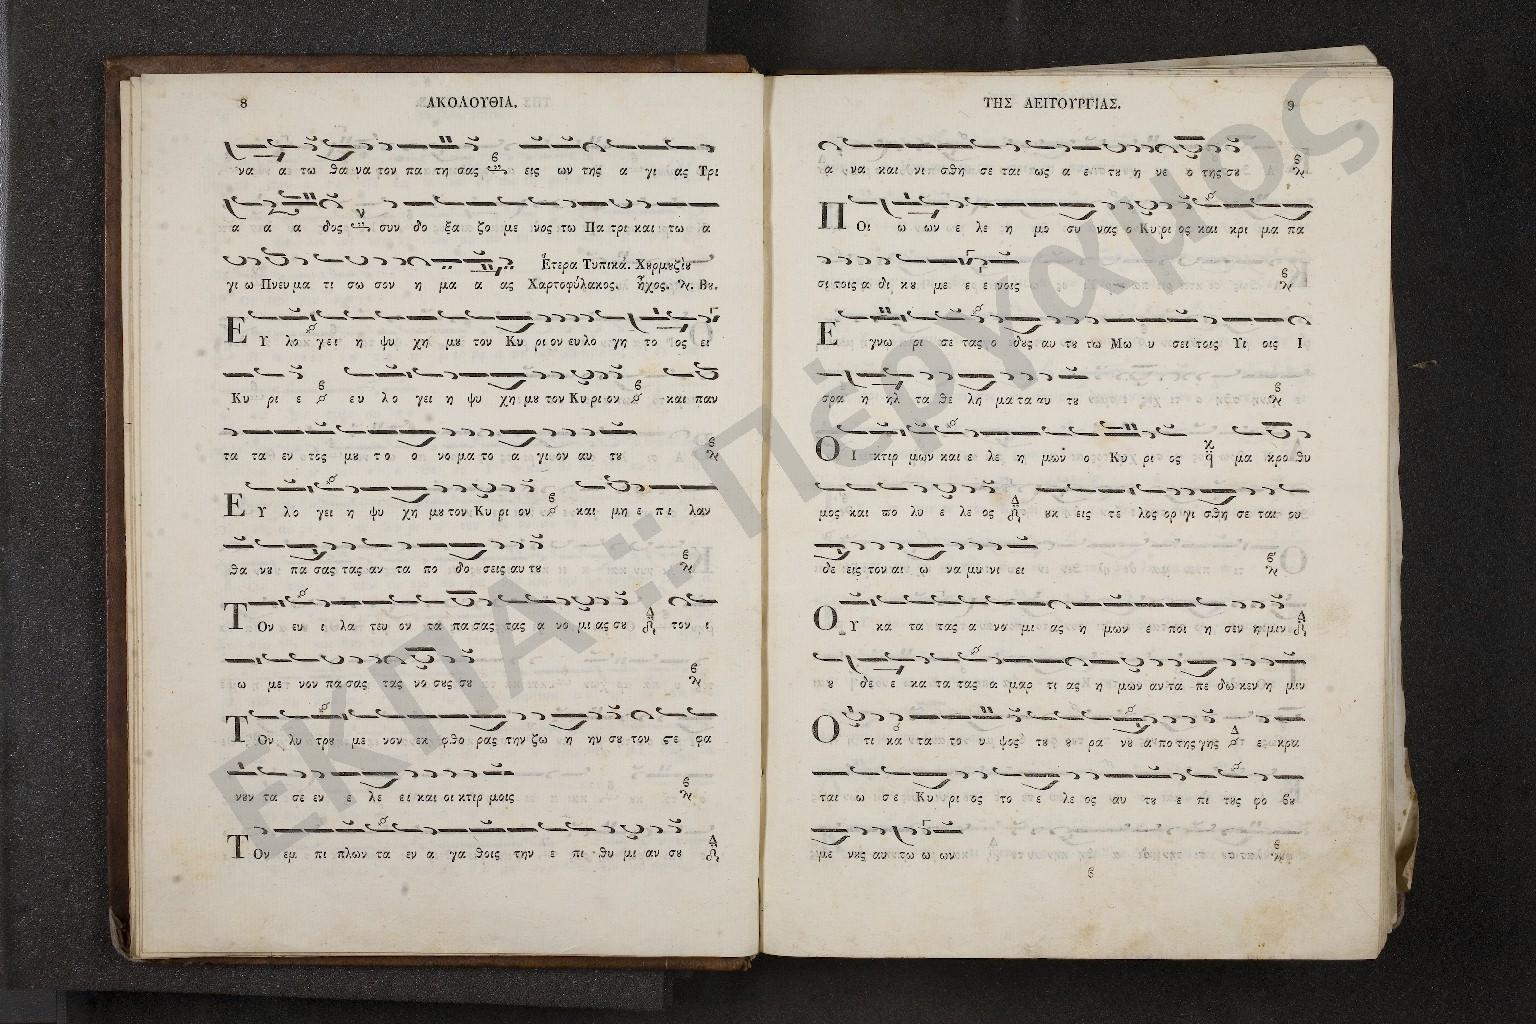 8
ΑΚΟΛΟΥΘΙΑ.
να α τω θα να τον πα τη σας εις ων της α γι ας Τρι
α α α δος συν δο ξα ζο με νος τω Πα τρι και τω α
Ἕτερα Τυπικά. Χȣρμȣζίȣ
γι ω Πνευ μα τι σω σον η μα α ας Χαρτοφύλακος. ἦχος. Βȣ.
Ε Υ λο γει η ψυ χη μȣ τον Κυ ρι ον ευ λο γη το ος ει
Κυ ρι ε ευ λο γει η ψυ χη μȣ τον Κυ ρι ον και παν
τα τα εν τος μȣ τ ο ο νο μα το α γι ον αυ τȣ
Ε Υ λο γει η ψυ χη μȣ τον Κυ ρι ον και μη ε πι λαν
θα νȣ πα σας τας αν τα πο δο σεις αυ τȣ
Τ Ον ευ ι λα τευ ον τα πα σας τας α νο μι ας σȣ τον ι
ω με νον πα σας τας νο σȣς σȣ
Τ Ον λυ τρȣ με νον εκ φθο ρας την ζω η ην σȣ τον στε φα
νȣν τα σε εν ε λε ει και οι κτιρ μοις
Τ Ον εμ πι πλων τα εν α γα θοις την ε πι θυ μι αν σȣ
ΤΗΣ ΛΕΙΤΟΥΡΓΙΑΣ.
9
α να και νι σθη σε ται ως α ε τȣ η νε ο της σȣ
Π Οι ω ων ε λε η μο συ νας ο Κυ ρι ος και κρι μα πα
σι τοις α δι κȣ με ε ε νοις
Ε γνω ρι σε τας ο δȣς αυ τȣ τω Μω υ σει τοις Υι οις Ι
σρα η ηλ τα θε λη μα τα αυ τȣ
Ο Ι κτιρ μων και ε λε η μων ο Κυ ρι ος μα κρο θυ
μος και πο λυ ε λε ος ȣκ εις τε λος ορ γι σθη σε ται ου
δε εις τον αι ω να μη νι ει
Ο Υ κα τα τας α νο μι ας η μων ε ποι η σεν η μιν
ȣ δε ε κα τα τας α μαρ τι ας η μων αν τα πε δω κεν η μιν
Ο τι κα τα το υ ψος τȣ ȣ ρα νȣ α πο της γης ε κρα
ται ω σε Κυ ρι ος το ε λε ος αυ τȣ ε πι τȣς φο βȣ
με νȣς αυ τω ω ων
ΕΚΠΑ :: Πέργαμος